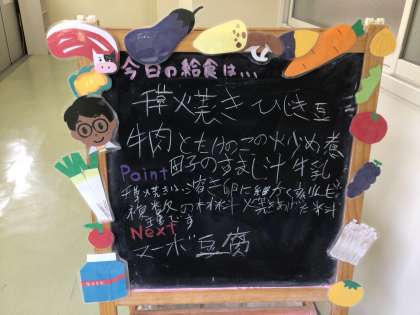 今日の給食は…
擬焼き ひじき豆
牛肉とたけのこの炒め煮
団子のすまし汁 牛乳
Point
擬焼きは、溶き卵に細かく刻んだ
複数の材料 焼きあげた料
Next
マーボ豆腐